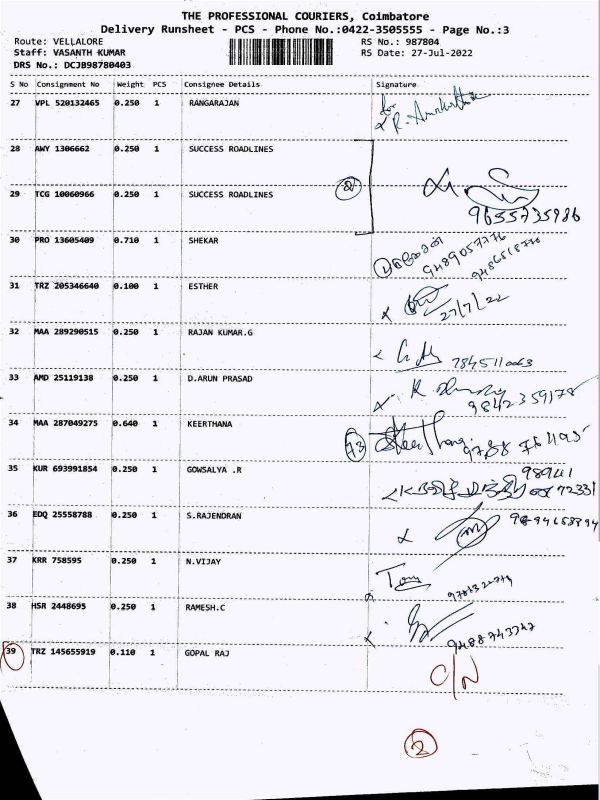 THE PROFESSIONAL COURIERS, Coimbatore
Delivery Runsheet - PCS - Phone No.:0422-3505555 - Page No.:3
Route: VELLALORE RS No.: 987804
Staff: VASANTH KUMAR RS Date: 27-Jul-2022
DRS No.: DCJB98780403
S No Consignment No Weight PCS Consignee Details Signature
27 VPL 520132465 0.250 1 RANGARAJAN for
28 AWY 1306662 0.250 1 SUCCESS ROADLINES
29 TCG 10060966 0.250 1 SUCCESS ROADLINES 2
9655735986
30 PRO 13605409 0.710 1 SHEKAR
9489057776
31 TRZ 205346640 0.100 1 ESTHER
27/7/22
32 MAA 289290515 0.250 1 RAJAN KUMAR.G
33 AMD 25119138 0.250 1 D.ARUN PRASAD
9842359178
34 MAA 287049275 0.640 1 KEERTHANA 73 Keerthana
35 KUR 693991854 0.250 1 GOWSALYA .R 98941
72331
36 EDQ 25558788 0.250 1 S.RAJENDRAN
37 KRR 758595 0.250 1 N.VIJAY
38 HSR 2448695 0.250 1 RAMESH.C
9488743347
39 TRZ 145655919 0.110 1 GOPAL RAJ C/N
2